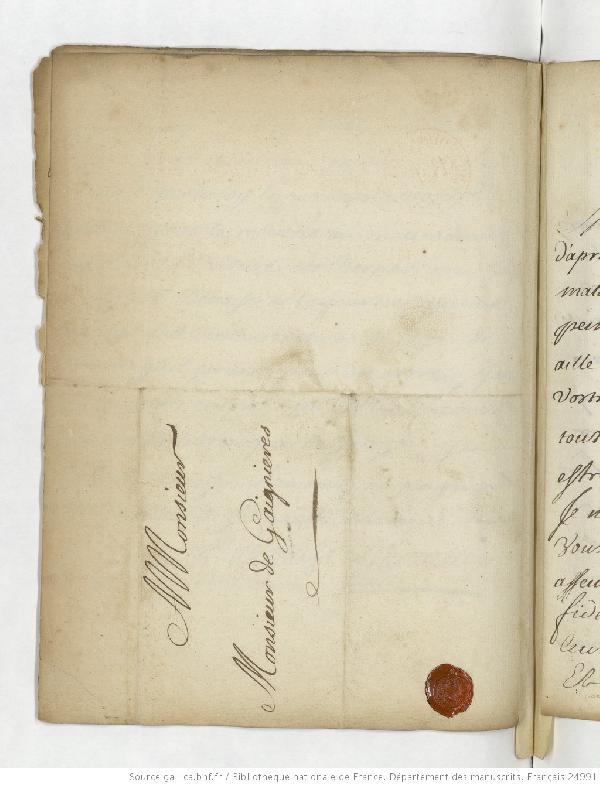 A Monsieur
Monsieur de Gaignieres
d'apr
mala
pein
aille
Vostr
tous
estre
Je n
Vous
asseu
fide
Source gallica.bnf.fr / Bibliothèque nationale de France. Département des manuscrits. Français 24991